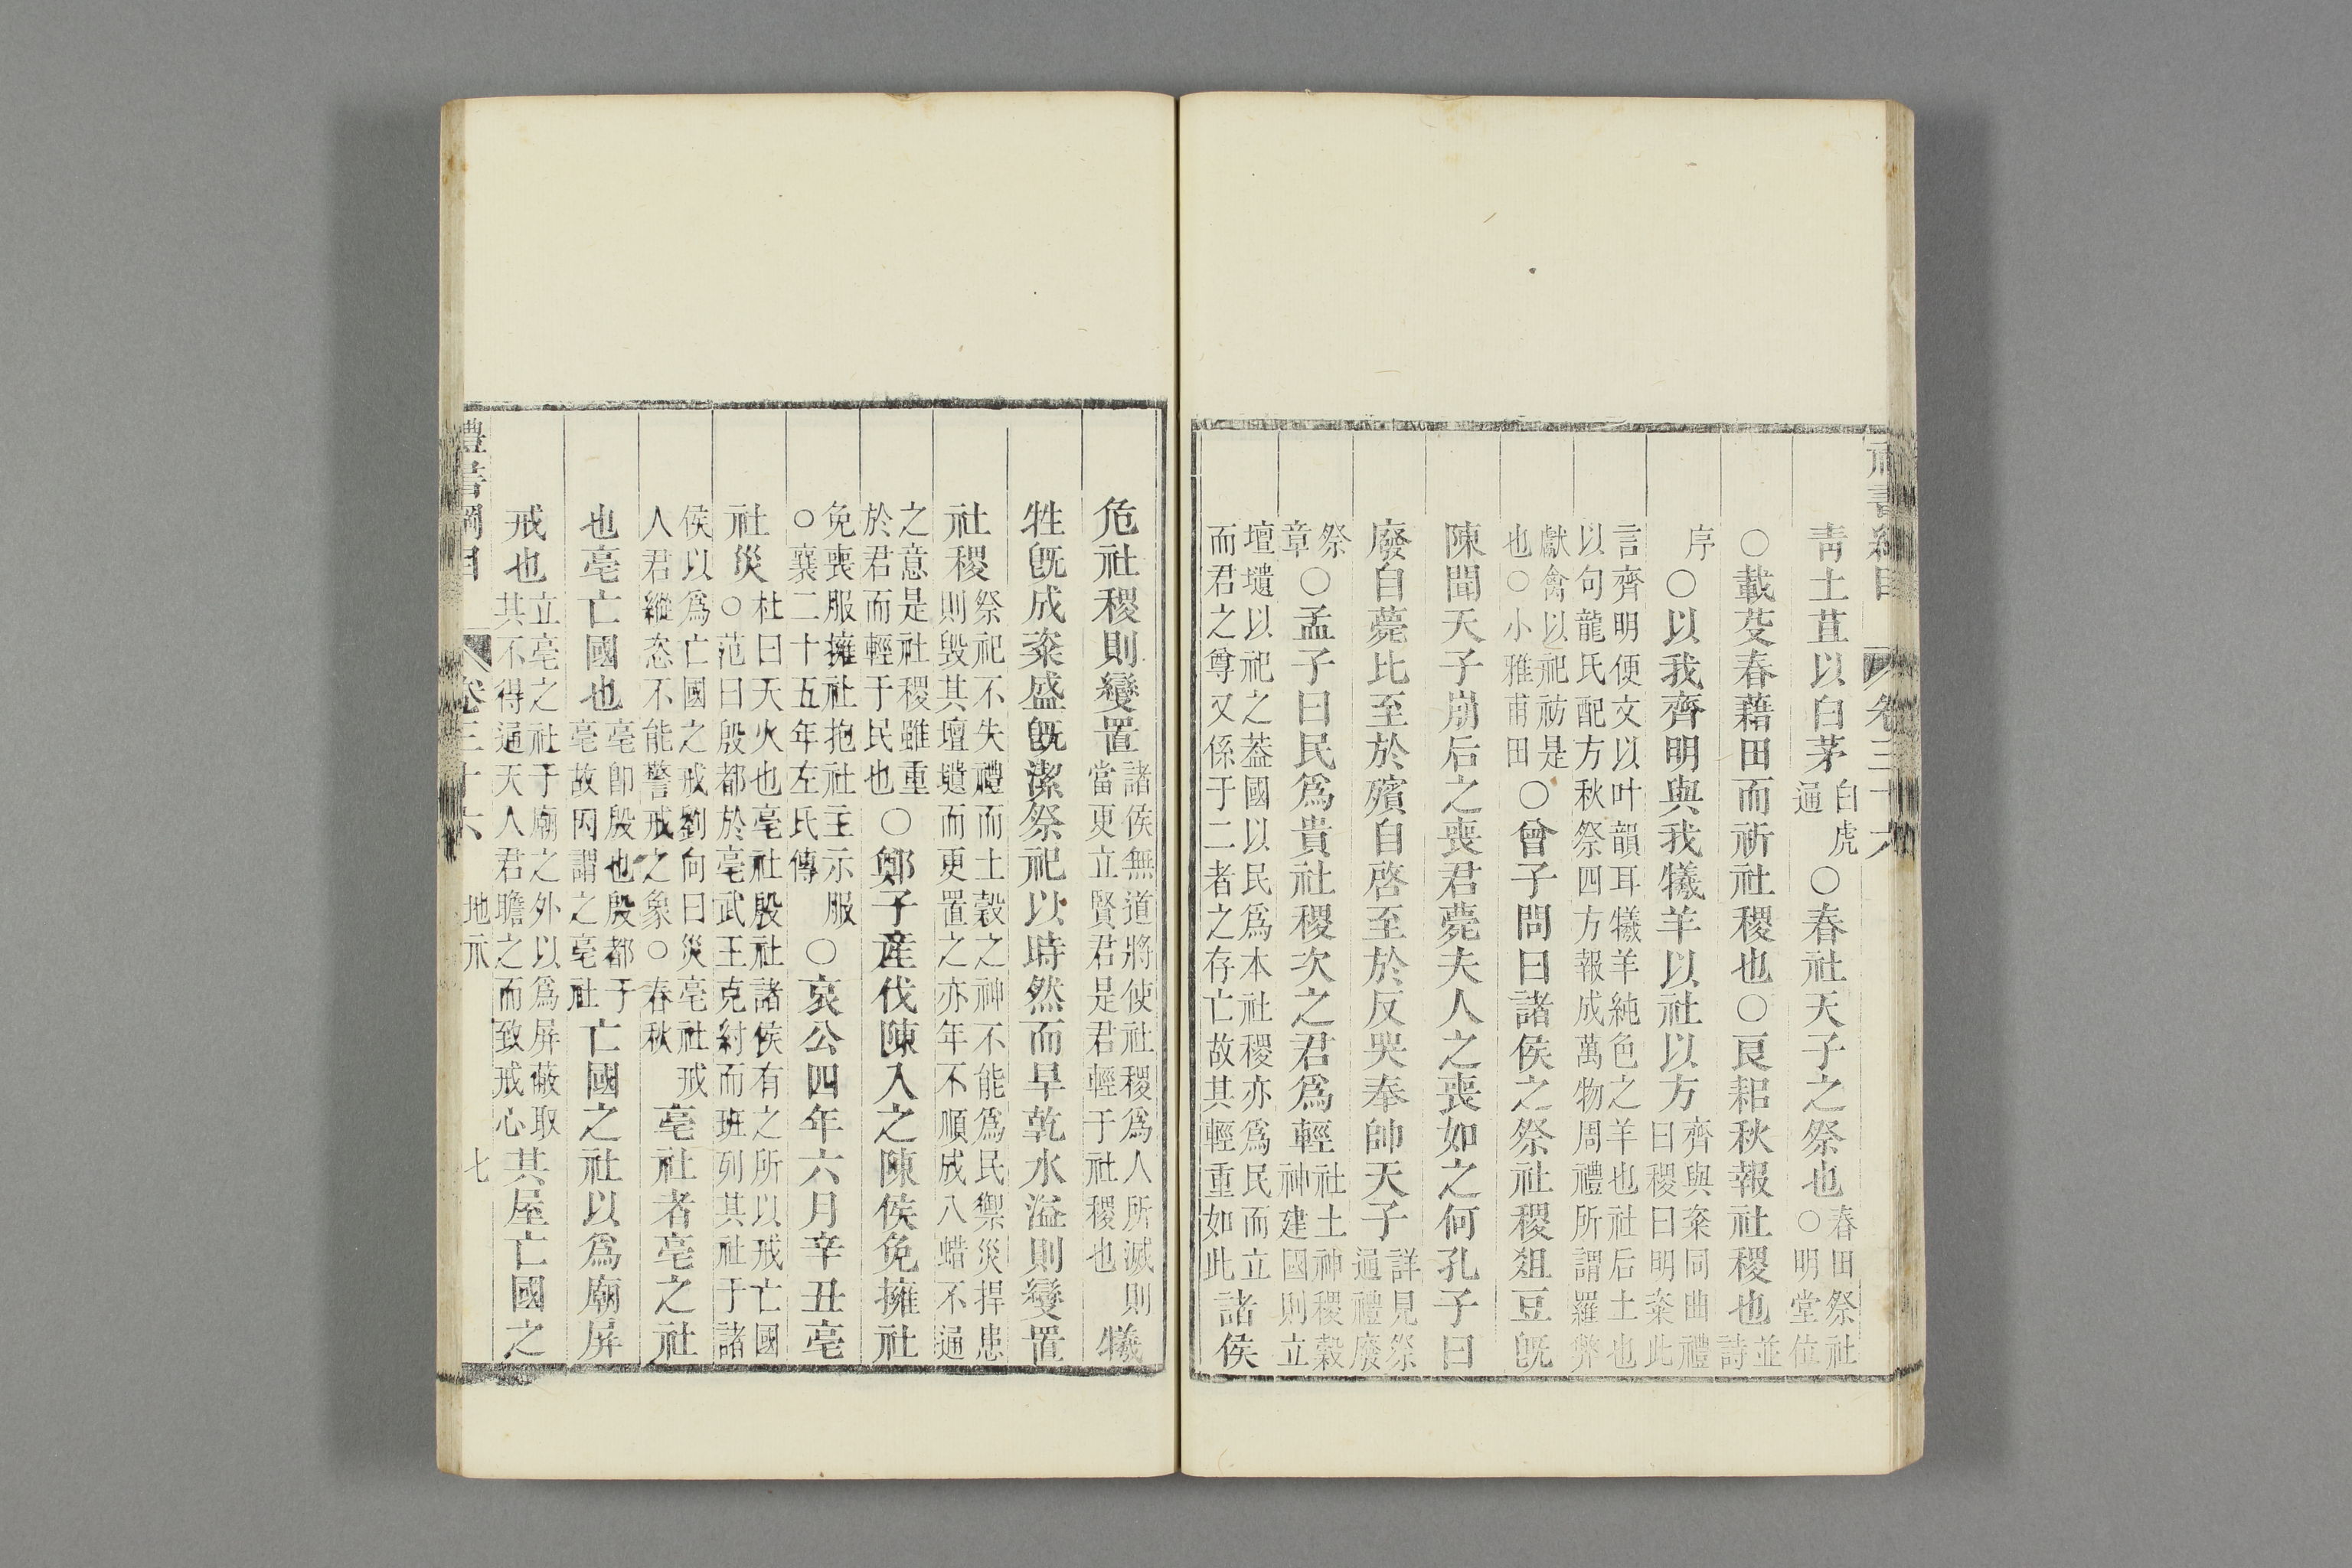 禮書綱目 卷三十六
青土苴以白茅白虎通○春社天子之祭也春田祭社○明堂位
○載芟春藉田而祈社稷也○良耜秋報社稷也並詩
序○以我齊明與我犧羊以社以方齊與粢同曲禮曰稷曰明粢此
言齊明便文以叶韻耳犧羊純色之羊也社后土也
以句龍氏配方秋祭四方報成萬物周禮所謂羅弊
獻禽以祀祊是也○小雅甫田○曾子問曰諸侯之祭社稷俎豆旣
陳聞天子崩后之喪君薨夫人之喪如之何孔子曰
廢自薨比至於殯自啓至於反哭奉帥天子詳見祭通禮廢
祭章○孟子曰民爲貴社稷次之君爲輕社土神稷穀神建國則立
壇壝以祀之葢國以民爲本社稷亦爲民而立
而君之尊又係于二者之存亡故其輕重如此諸侯
危社稷則變置諸侯無道將使社稷爲人所滅則當更立賢君是君輕于社稷也犧
牲旣成粢盛旣潔祭祀以時然而旱乾水溢則變置
社稷祭祀不失禮而土穀之神不能爲民禦災捍患則毀其壇壝而更置之亦年不順成八蜡不通
之意是社稷雖重於君而輕于民也○鄭子産伐陳入之陳侯免擁社
免喪服擁社抱社主示服○襄二十五年左氏傳○哀公四年六月辛丑亳
社災杜曰天火也亳社殷社諸侯有之所以戒亡國○范曰殷都於亳武王克紂而班列其社于諸
侯以爲亡國之戒劉向曰災亳社戒人君縱恣不能警戒之象○春秋亳社者亳之社
也亳亡國也亳卽殷也殷都于亳故因謂之亳社亡國之社以爲廟屏
戒也立亳之社于廟之外以爲屏蔽取其不得通天人君瞻之而致戒心其屋亡國之
禮書綱目 卷三十六 地示 七